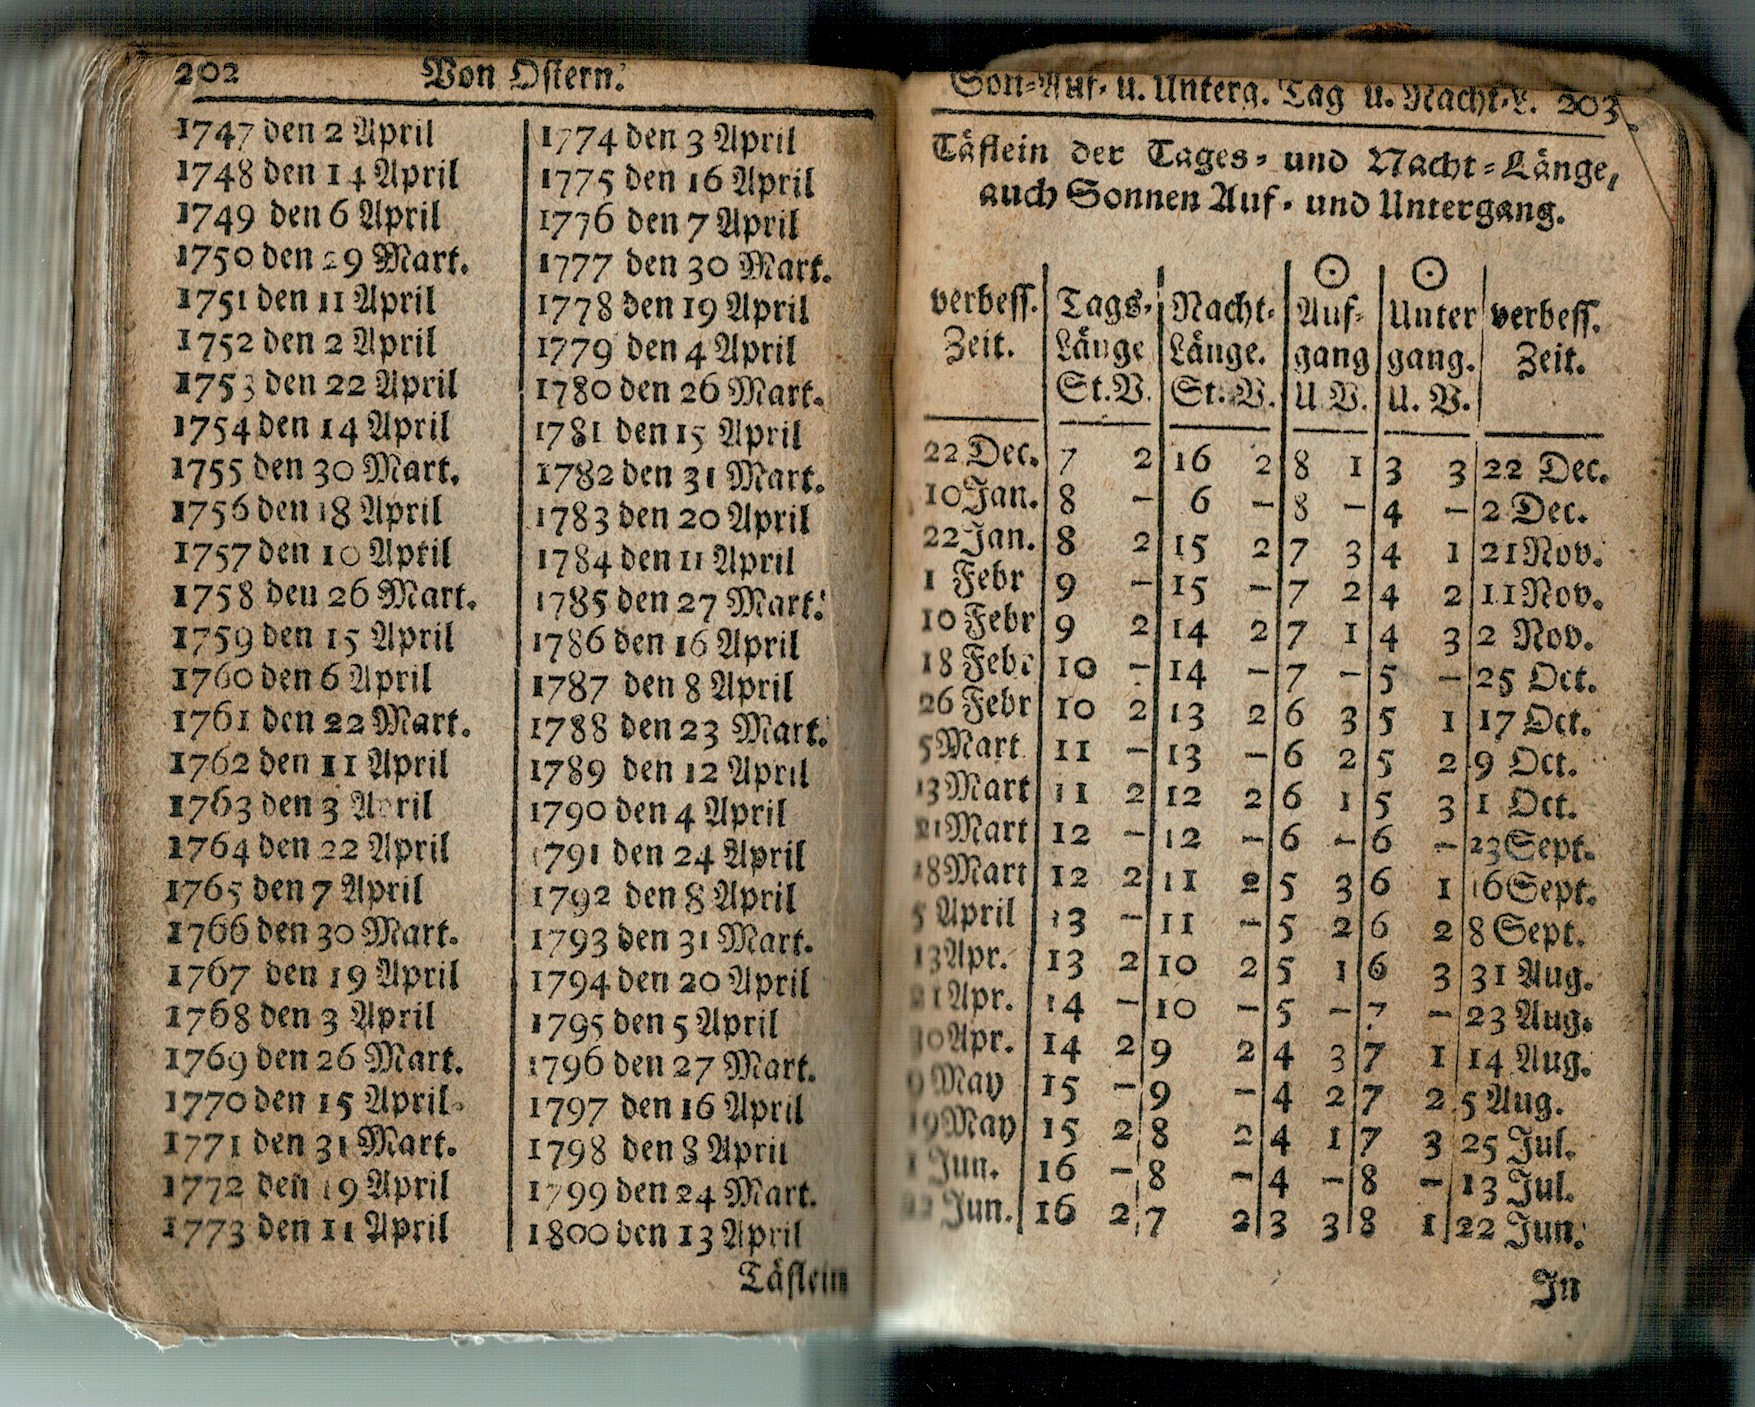 202 Von Ostern.
1747 den 2 April
1748 den 14 April
1749 den 6 April
1750 den 29 Mart.
1751 den 11 April
1752 den 2 April
1753 den 22 April
1754 den 14 April
1755 den 30 Mart.
1756 den 18 April
1757 den 10 April
1758 den 26 Mart.
1759 den 15 April
1760 den 6 April
1761 den 22 Mart.
1762 den 11 April
1763 den 3 April
1764 den 22 April
1765 den 7 April
1766 den 30 Mart.
1767 den 19 April
1768 den 3 April
1769 den 26 Mart.
1770 den 15 April
1771 den 31 Mart.
1772 den 19 April
1773 den 11 April
1774 den 3 April
1775 den 16 April
1776 den 7 April
1777 den 30 Mart.
1778 den 19 April
1779 den 4 April
1780 den 26 Mart.
1781 den 15 April
1782 den 31 Mart.
1783 den 20 April
1784 den 11 April
1785 den 27 Mart.
1786 den 16 April
1787 den 8 April
1788 den 23 Mart.
1789 den 12 April
1790 den 4 April
1791 den 24 April
1792 den 8 April
1793 den 31 Mart.
1794 den 20 April
1795 den 5 April
1796 den 27 Mart.
1797 den 16 April
1798 den 8 April
1799 den 24 Mart.
1800 den 13 April
Täflein
Son-Auf- u. Unterg. Tag u. Nacht-L. 203
Täflein der Tages- und Nacht-Länge,
auch Sonnen Auf- und Untergang.
☉ ☉
verbess. Tags- Nacht- Auf- Unter verbess.
Zeit. Länge Länge. gang gang. Zeit.
St. V. St. V. U V. U. V.
22 Dec. 7 2 16 2 8 1 3 3 22 Dec.
10 Jan. 8 - 6 - 8 - 4 - 2 Dec.
22 Jan. 8 2 15 2 7 3 4 1 21 Nov.
1 Febr 9 - 15 - 7 2 4 2 11 Nov.
10 Febr 9 2 14 2 7 1 4 3 2 Nov.
18 Febr 10 - 14 - 7 - 5 - 25 Oct.
26 Febr 10 2 13 2 6 3 5 1 17 Oct.
5 Mart 11 - 13 - 6 2 5 2 9 Oct.
13 Mart 11 2 12 2 6 1 5 3 1 Oct.
21 Mart 12 - 12 - 6 - 6 - 23 Sept.
18 Mart 12 2 11 2 5 3 6 1 16 Sept.
5 April 13 - 11 - 5 2 6 2 8 Sept.
13 Apr. 13 2 10 2 5 1 6 3 31 Aug.
21 Apr. 14 - 10 - 5 - 7 - 23 Aug.
30 Apr. 14 2 9 2 4 3 7 1 14 Aug.
9 May 15 - 9 - 4 2 7 2 5 Aug.
19 May 15 2 8 2 4 1 7 3 25 Jul.
1 Jun. 16 - 8 - 4 - 8 - 13 Jul.
Jun. 16 2 7 2 3 3 8 1 22 Jun.
In